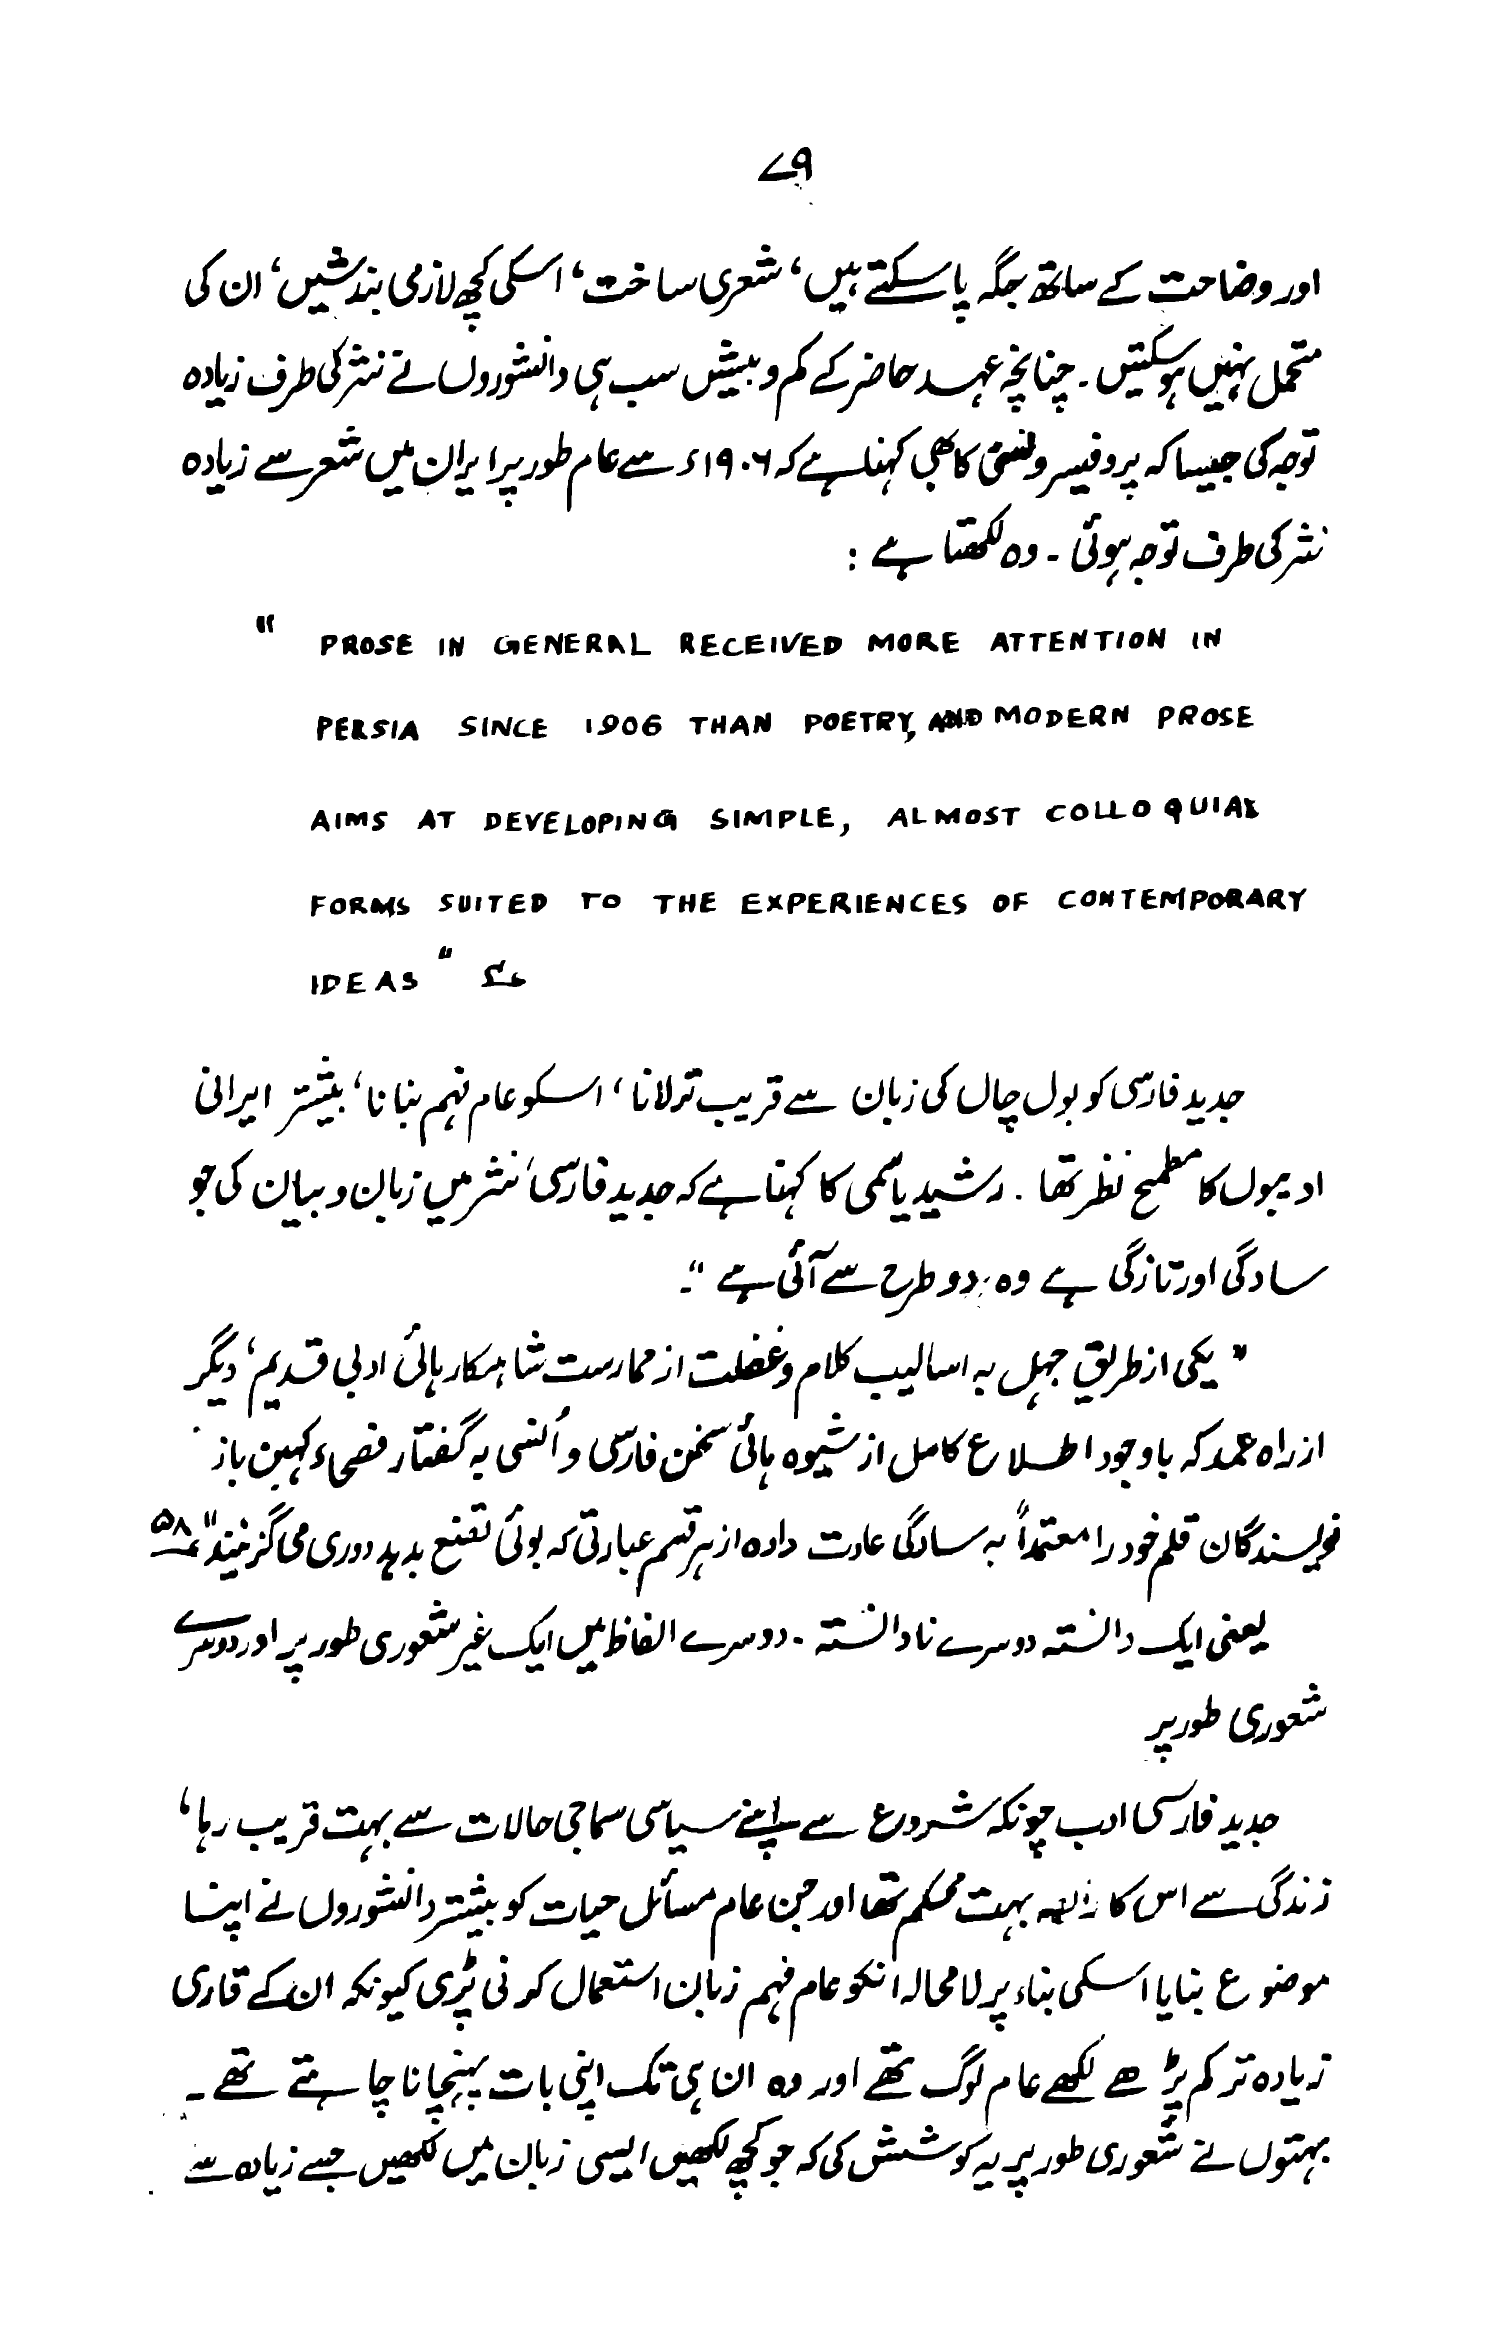 ۷۹
اور وضاحت کے ساتھ جگہ پا سکتے ہیں، شعری ساخت، اسکی کچھ لازمی بندشیں، ان کی
متحمل نہیں ہو سکتیں۔ چنانچہ عہد حاضر کے کم و بیش سب ہی دانشوروں نے نثر کی طرف زیادہ
توجہ کی جیسا کہ پروفیسر ولسن کا بھی کہنا ہے کہ ۱۹۰۶ء سے عام طور پر ایران میں شعر سے زیادہ
نثر کی طرف توجہ ہوئی۔ وہ لکھتا ہے :
" PROSE IN GENERAL RECEIVED MORE ATTENTION IN
PERSIA SINCE 1906 THAN POETRY, AND MODERN PROSE
AIMS AT DEVELOPING SIMPLE, ALMOST COLLOQUIAL
FORMS SUITED TO THE EXPERIENCES OF CONTEMPORARY
IDEAS "
جدید فارسی کو بول چال کی زبان سے قریب تر لانا، اسکو عام فہم بنانا، بیشتر ایرانی
ادیبوں کا مطمح نظر تھا۔ رشید یاسمی کا کہنا ہے کہ جدید فارسی نثر میں زبان و بیان کی جو
سادگی اور تازگی ہے وہ دو طرح سے آئی ہے "۔
" یکی از طریق جہل بہ اسالیب کلام و غفلت از ممارست شاہکار ہائی ادبی قدیم، دیگر
از راہ عمد کہ باوجود اطلاع کامل از شیوہ ہائی سخن فارسی و اُنسی بہ گفتار فصحاء کہین باز
نویسندگان قلم خود را معتمداً بہ سادگی عادت دادہ از ہر قسم عبارتی کہ بوئی تصنع بدہد دوری می گزینند" ۵۸
یعنی ایک دانستہ دوسرے نادانستہ۔ دوسرے الفاظ میں ایک غیر شعوری طور پر اور دوسرے
شعوری طور پر
جدید فارسی ادب چونکہ شروع سے اپنے سیاسی سماجی حالات سے بہت قریب رہا،
زندگی سے اس کا رابطہ بہت محکم تھا اور جن عام مسائل حیات کو بیشتر دانشوروں نے اپنا
موضوع بنایا اسکی بناء پر لامحالہ انکو عام فہم زبان استعمال کرنی پڑی کیونکہ ان کے قاری
زیادہ تر کم پڑھے لکھے عام لوگ تھے اور وہ ان ہی تک اپنی بات پہنچانا چاہتے تھے۔
بہتوں نے شعوری طور پر یہ کوشش کی کہ جو کچھ لکھیں ایسی زبان میں لکھیں جسے زیادہ سے